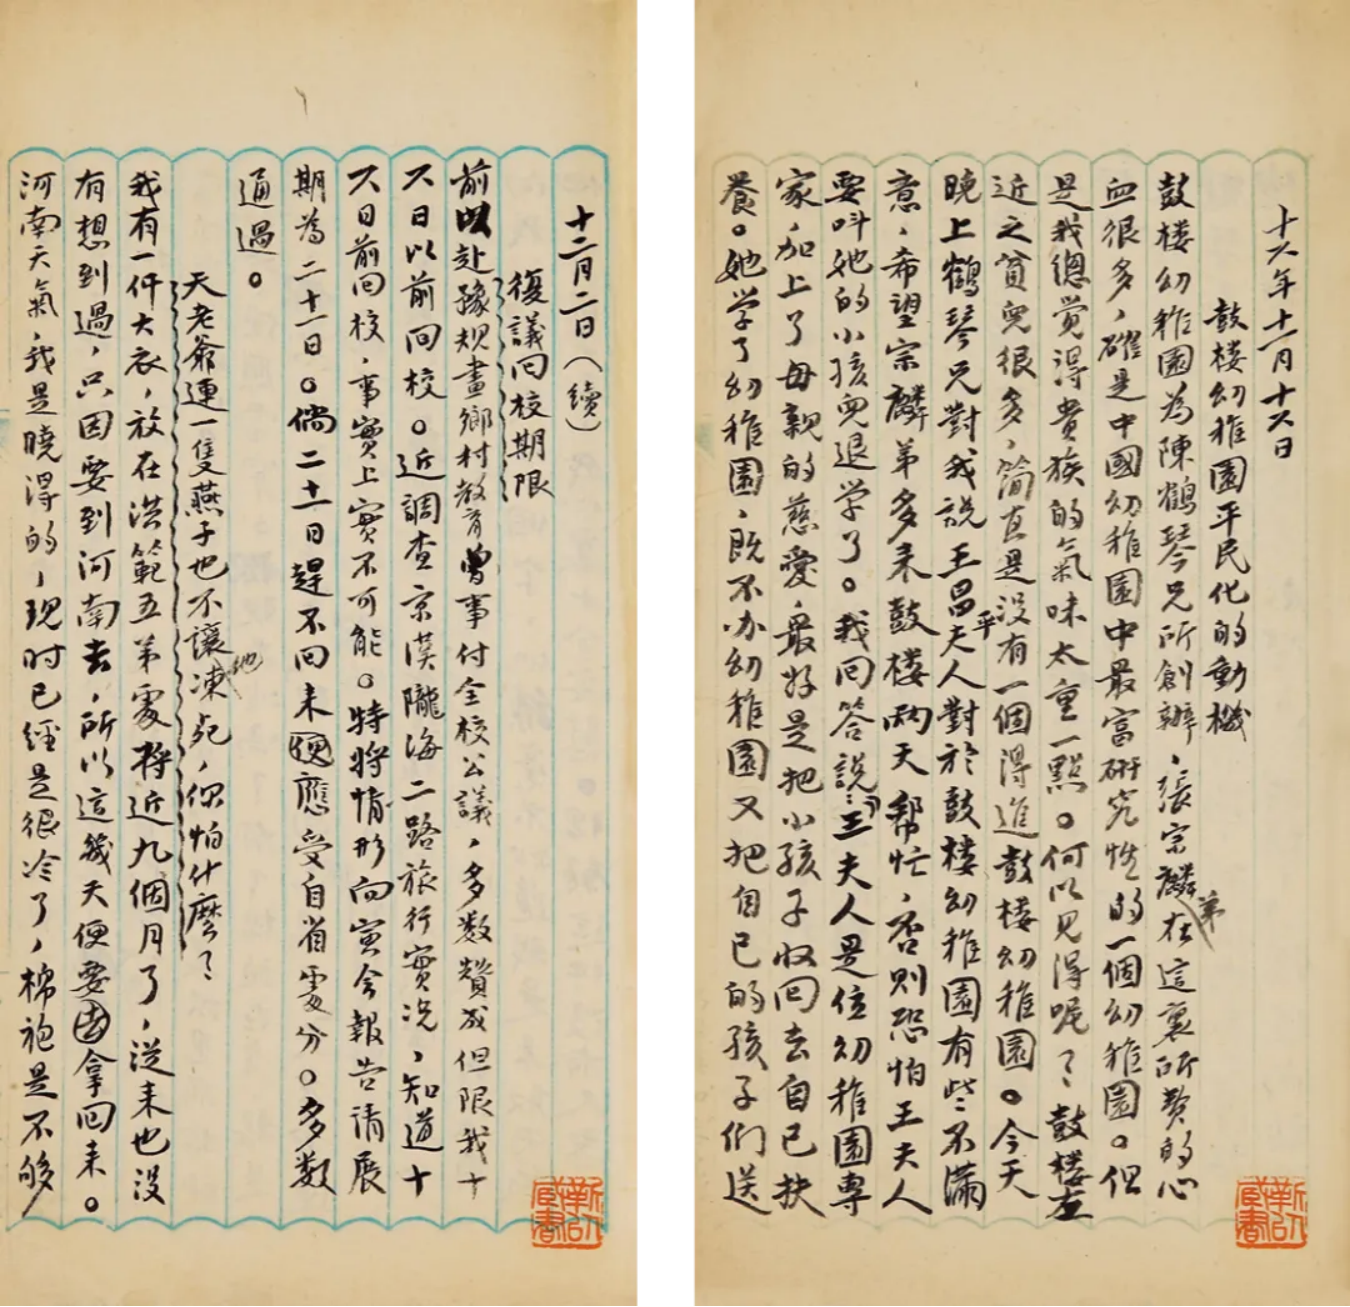 十六年十一月十六日
鼓楼幼稚園平民化的動機
鼓楼幼稚園为陳鶴琴兄所創辦，張宗麟弟在這裏所费的心
血很多，確是中國幼稚園中最富研究性的一個幼稚園。但
是我總觉得貴族的氣味太重一點。何以见得呢？鼓楼左
近之貧兒很多，简直是没有一個得進鼓楼幼稚園。今天
晚上鶴琴兄對我説王昌平夫人對於鼓楼幼稚園有些不满
意，希望宗麟弟多来鼓楼两天帮忙，否则恐怕王夫人
要叫她的小孩兒退学了。我回答説：王夫人是位幼稚園專
家，加上了母親的慈愛，最好是把小孩子收回去自己扶
養。她学了幼稚園，既不办幼稚園又把自己的孩子們送
十二月二日（續）
復議回校期限
前以赴豫規畫鄉村教育曾事付全校公議，多数赞成但限我十
六日以前回校。近調查京漢隴海二路旅行實况，知道十
六日前回校，事實上實不可能。特將情形向寅会報告请展
期為二十一日。倘二十一日趕不回来應受自省處分。多数
通過。
天老爺連一隻燕子也不讓他凍死，你怕什麽？
我有一件大衣，放在洪範五弟處将近九個月了，從来也没
有想到過，只因要到河南去，所以這幾天便要去拿回来。
河南天氣，我是曉得的，现时已經是很冷了，棉袍是不够